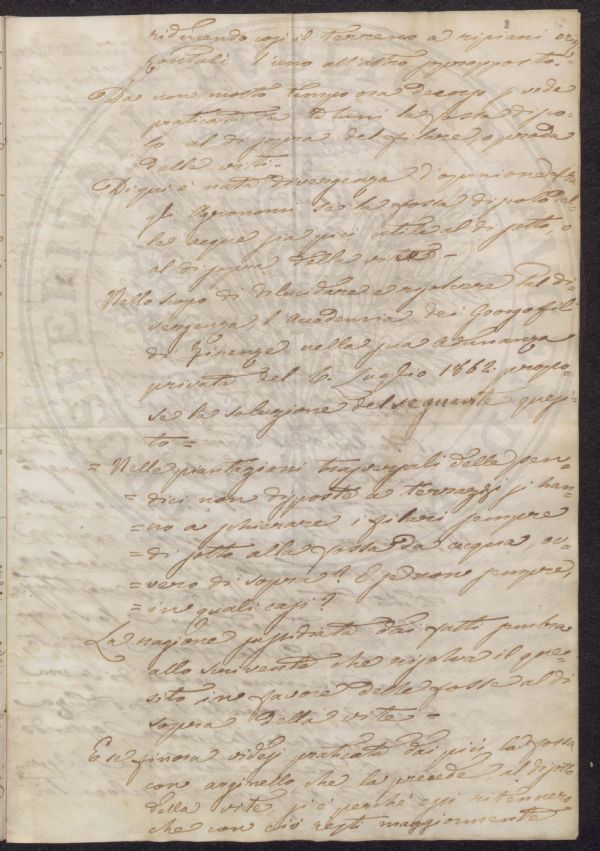 2
riducendo così il terreno a ripiani oriz
zontali l'uno all'altro sovrapposto.=
Da non molto tempo ora decorso si vede
praticata da taluni la fossa di sco-
lo al di sopra del filare o preda
delle viti.-
Di qui è nata divergenza d'opinione fra
gli Agronomi se la fossa di scolo del-
le acque sia più utile al di sotto, o
al di sopra della vite.-
Nello scopo di dilucidare e risolvere tal di-
vergenza l'Accademia dei Georgofili
di Firenze nella sua Adunanza
privata del 6. Luglio 1862. propo-
se la soluzione del seguente quesi-
to=
= Nelle piantagioni trasversali delle pen-
= dici non disposte a terrazzi si han-
= no a schierare i filari sempre
= di sotto alla fossa da acqua, ov-
= vero di sopra? E se non sempre,
= in quali casi?
La ragione sussidiata dai fatti sembra
allo scrivente che risolva il que-
sito in favore delle fosse al di
sopra della vite-
E se finora videsi praticata dai più la fossa
con arginello che la precede al disotto
della vite, si è perché essi ritennero
che con ciò resti maggiormente